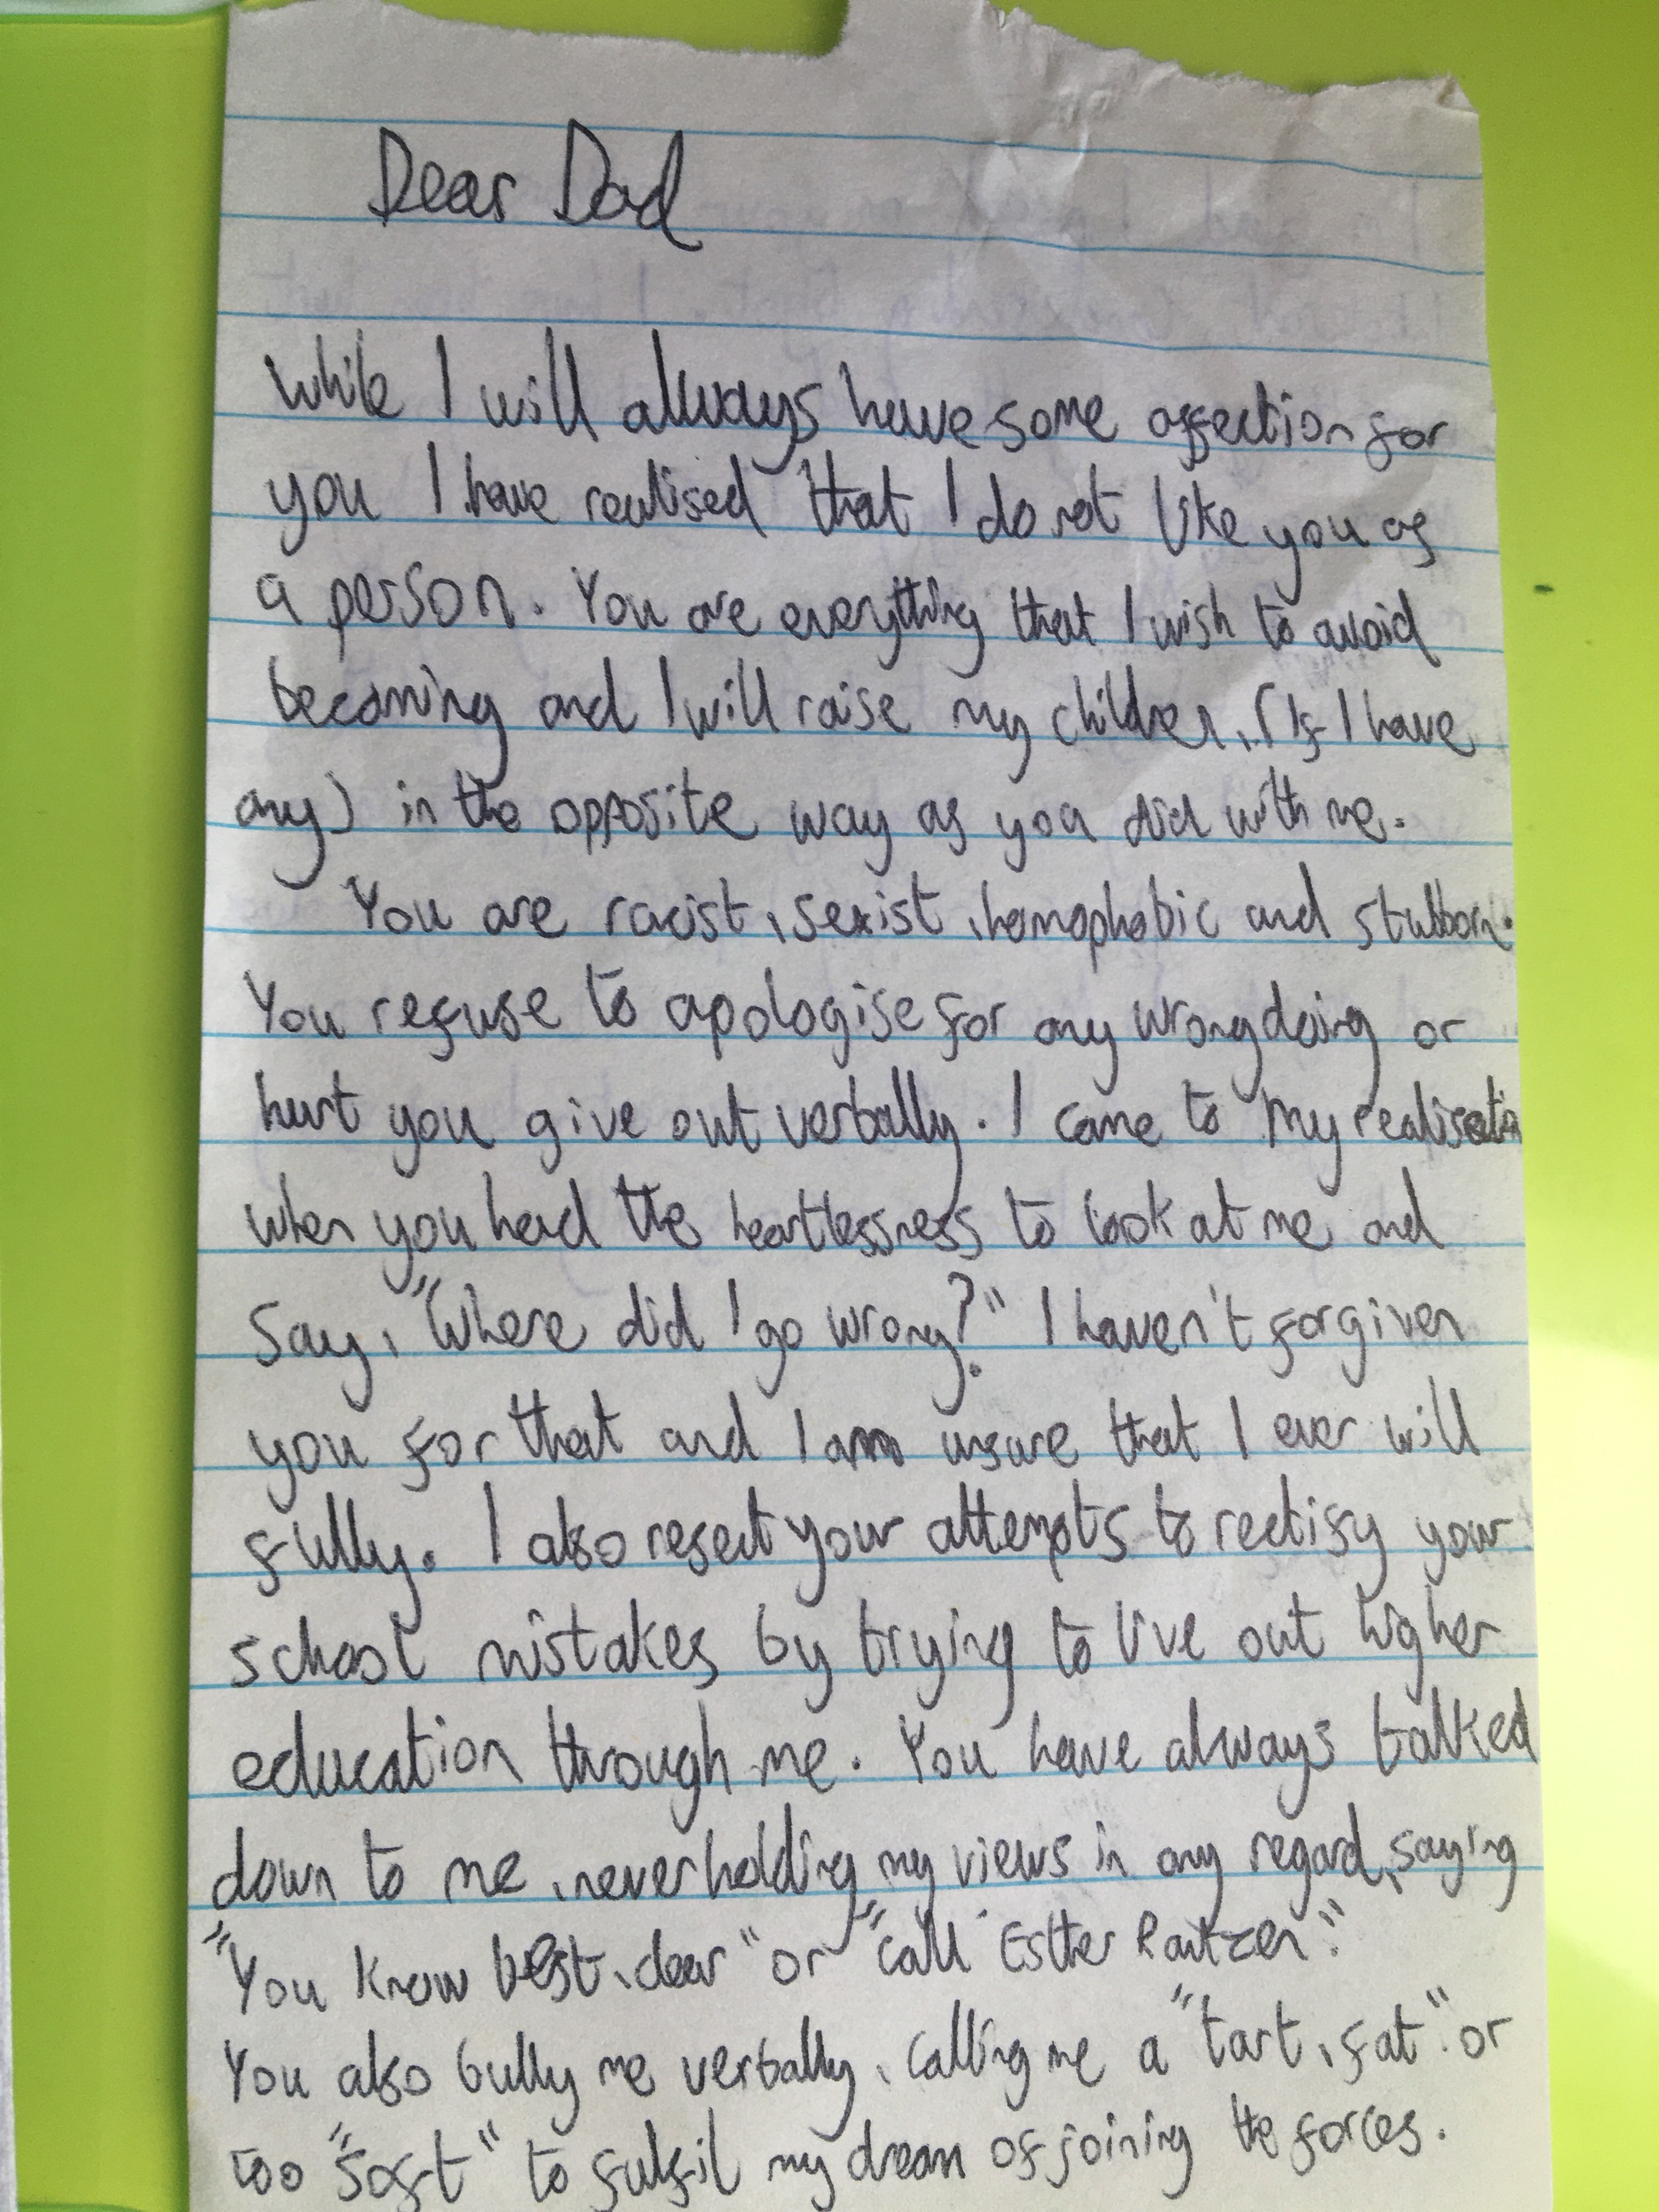 Dear Dad
While I will always have some affection for
you I have realised that I do not like you as
a person. You are everything that I wish to avoid
becoming and I will raise my children, (If I have
any) in the opposite way as you did with me.
You are racist, sexist, homophobic and stubborn.
You refuse to apologise for any wrongdoing or
hurt you give out verbally. I came to my realisation
when you had the heartlessness to look at me and
say, "Where did I go wrong?" I haven't forgiven
you for that and I am unsure that I ever will
fully. I also resent your attempts to rectify your
school mistakes by trying to live out higher
education through me. You have always talked
down to me, never holding my views in any regard, saying
"You know best, dear" or "call Esther Rantzen".
You also bully me verbally, calling me a "tart, fat" or
too "soft" to fulfil my dream of joining the forces.